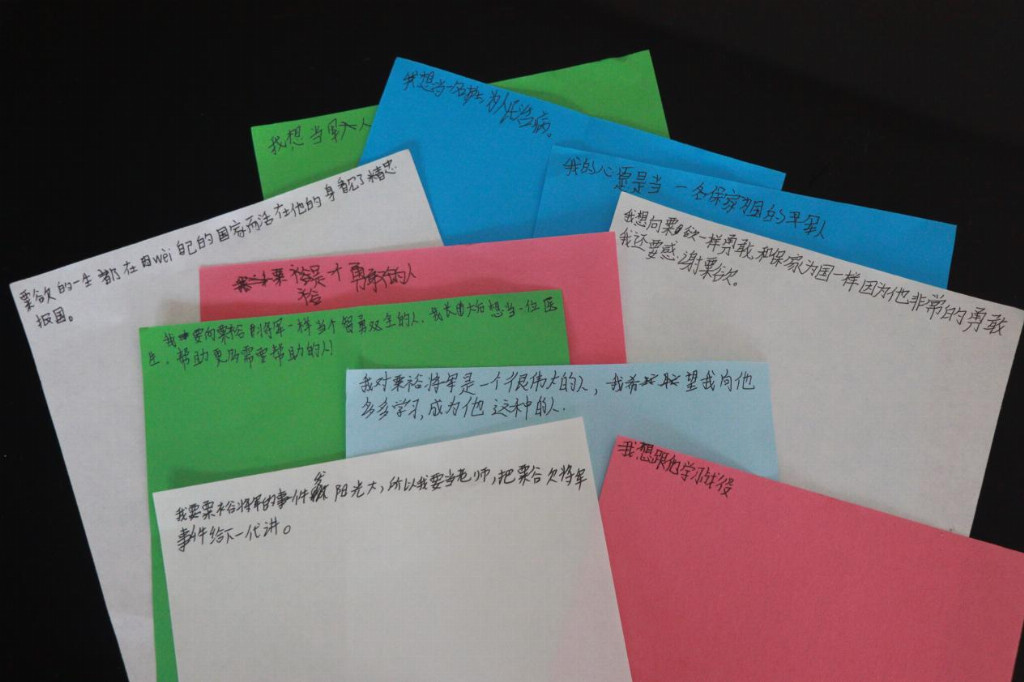 我想当军人
我想当一名 为人民治病。
我的心愿是当一名保家 国的 军人
粟欲的一生都在 wèi自己的国家而活在他的身 了精忠
报国。
我想向粟欲一样勇敢,和保家为国一样因为他非常的勇敢
我还要感谢粟欲。
粟裕是个勇敢的人
裕
我要向粟裕 将军一样当个智勇双全的人。我长大后想当一位医
生,帮助更多需要帮助的人!
我对粟裕将军是一个很伟大的人,我希 望我向他
多多学习,成为他这种的人.
我想跟他学习战役
我要粟裕将军的事件 阳光大,所以我要当老师,把粟谷欠将军
事件给下一代讲。